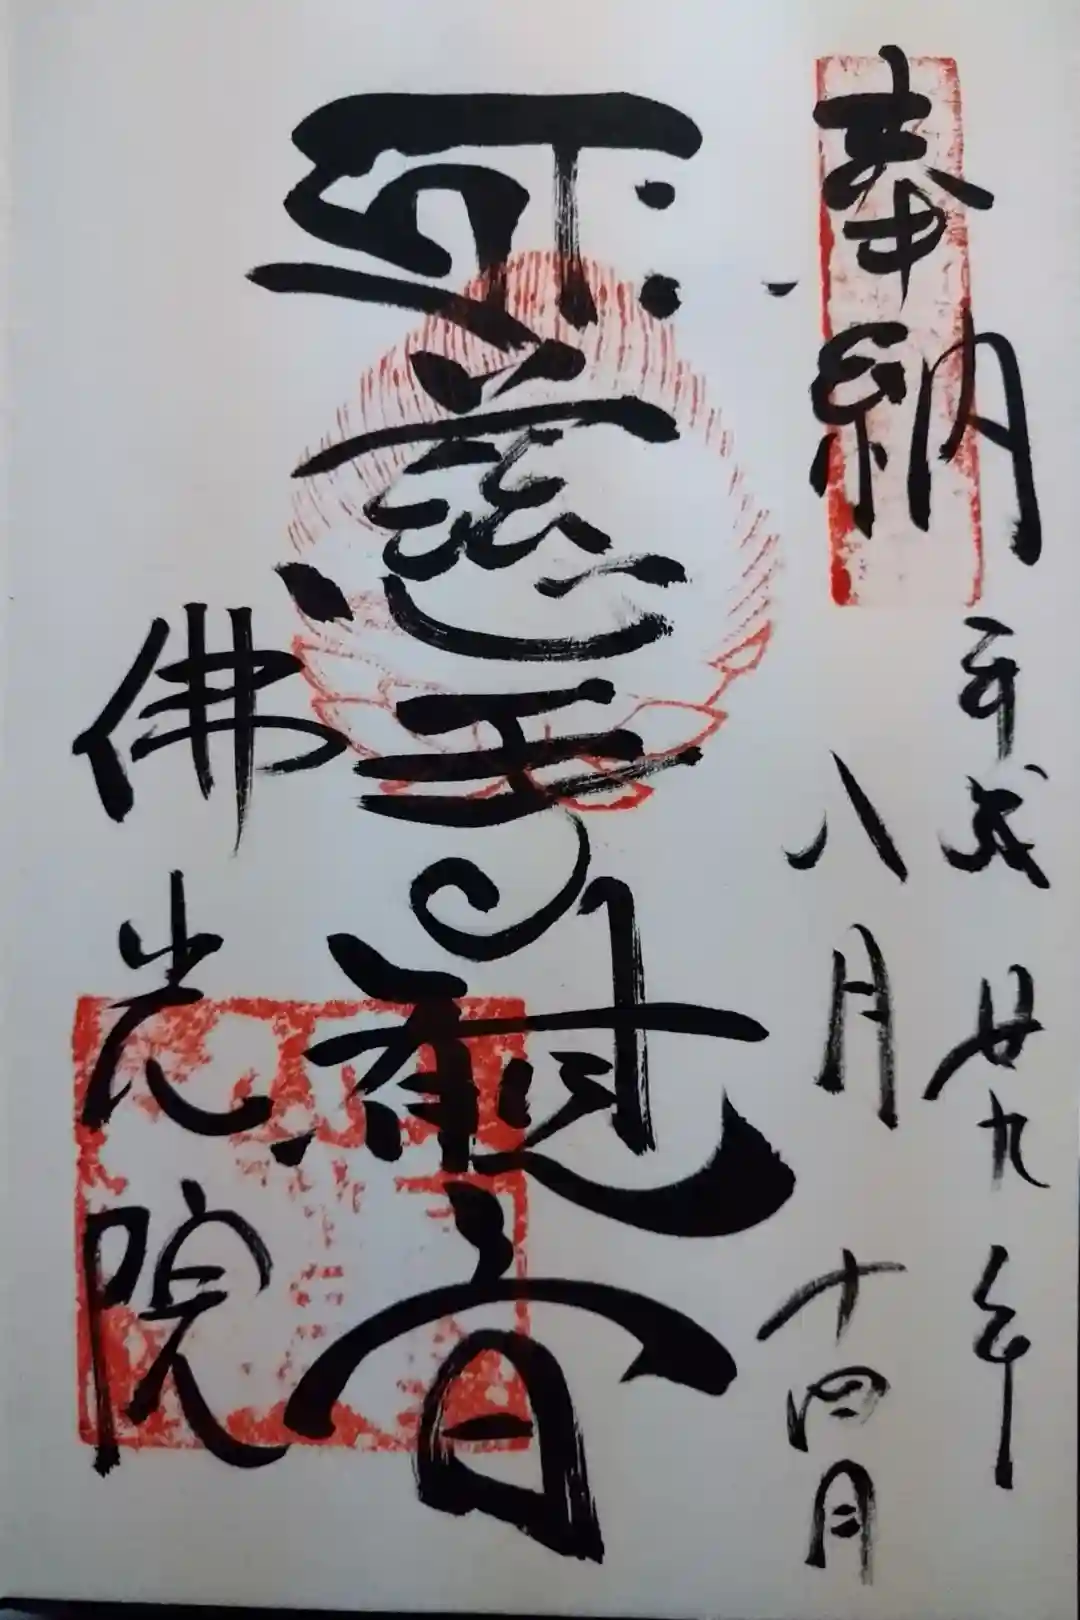 奉納
平成廿九年
八月十四日
慈観音
佛光院